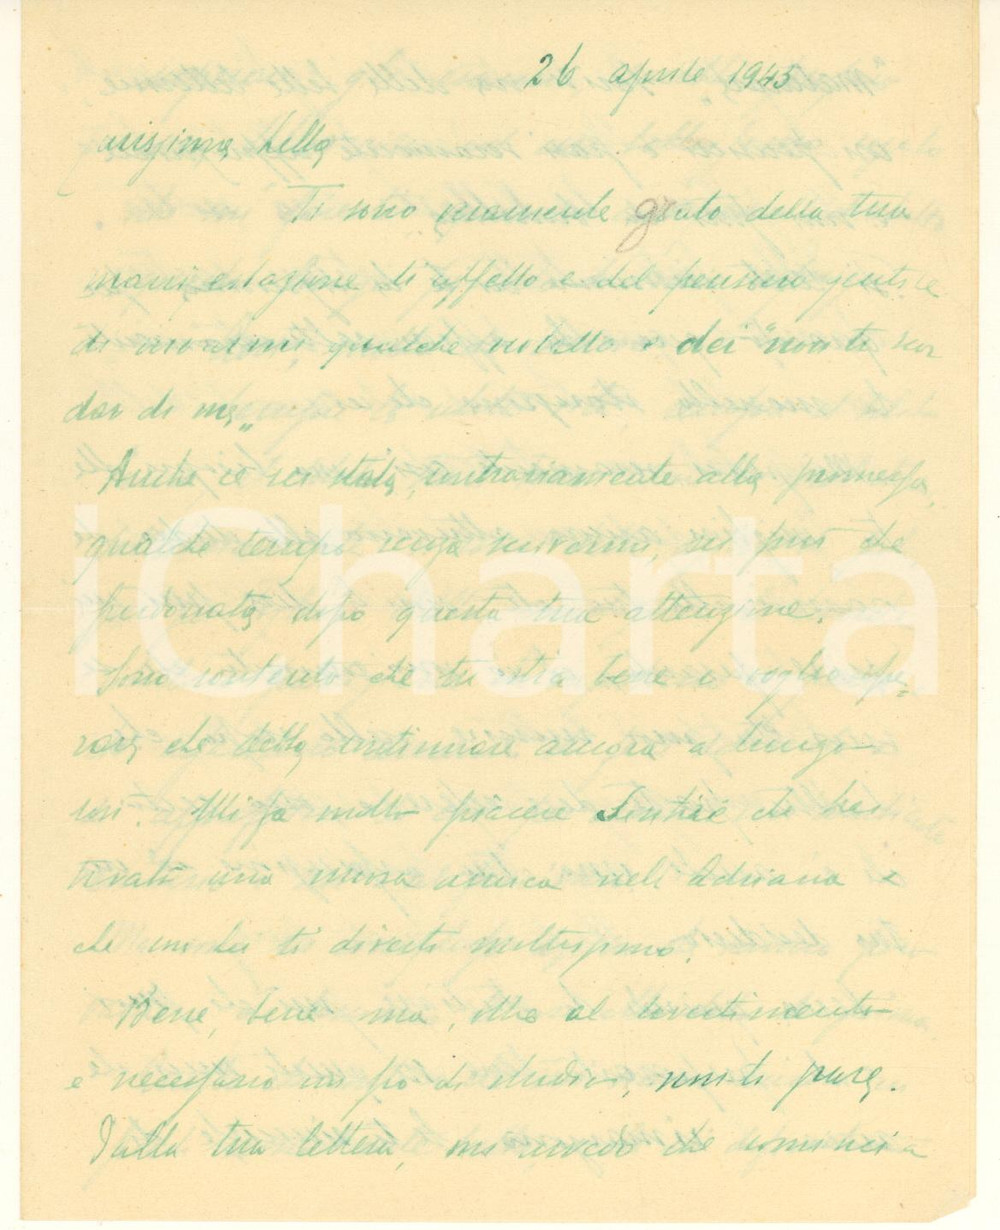 26 aprile 1945
arissima Lella
Ti sono veramente grato della tua
manifestazione di affetto e del pensiero gentile
di inviarmi qualche violetta e dei "non ti scor
dar di me"
Anche se sei stata, contrariamente alla promessa,
qualche tempo senza scrivermi, sei più che
perdonata dopo questa tua attenzione.
Sono contento che tu stia bene e voglio spe=
rare che debba continuare ancora a lungo
così. Mi fa molto piacere sentire che hai
trovato una nuova amica nell'Adriana e
che con lei ti diverti moltissimo.
Bene, bene ma, oltre al divertimento
è necessario un po' di studio, non ti pare.
Dalla tua lettera, mi accorgo che comincia
iCharta